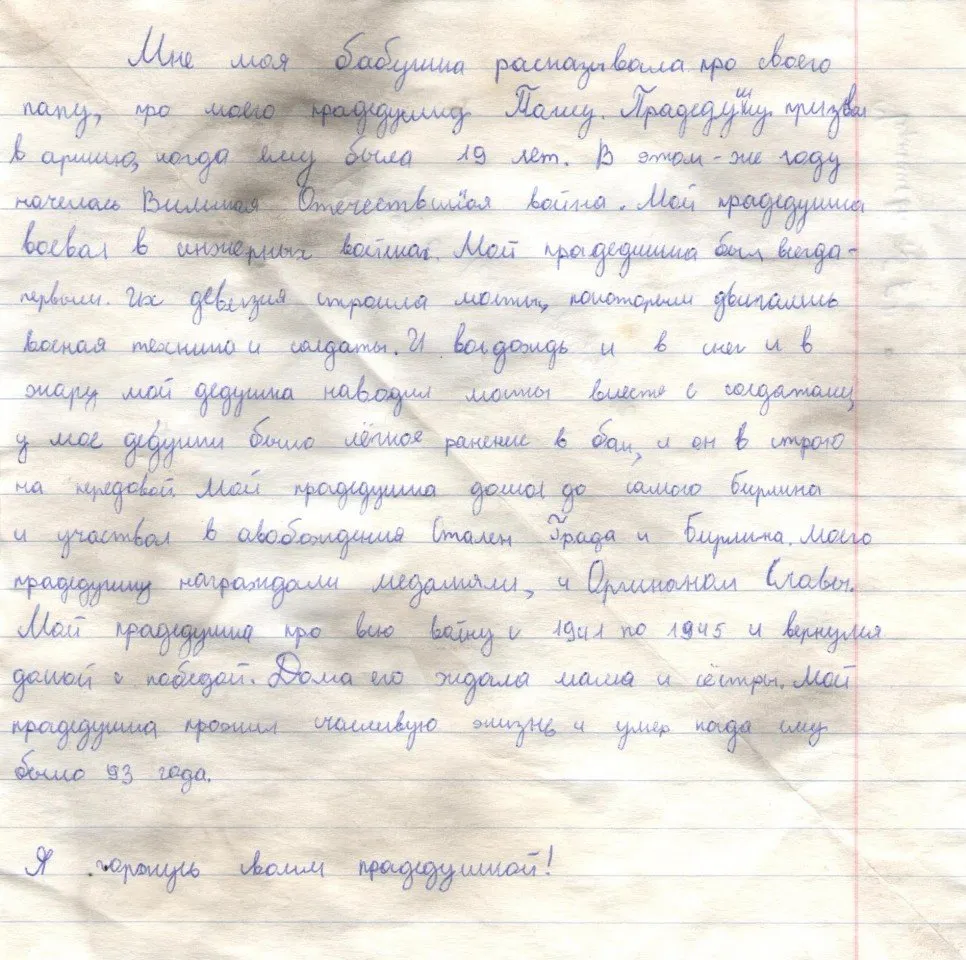 Мне моя бабушка расказывала про своего
папу, про моего прадедушку Пашу. Прадедушку призва
в армию, когда ему было 19 лет. В этом-же году
началась Великая Отечественная война. Мой прадедушка
воевал в инжерных войсках. Мой прадедушка был всегда-
первым. Их девизия строила мосты, покоторым двигались
военая технико и солдаты. И вовдождь и в снег и в
жару мой дедушка наводил мосты вместе с солдатами,
у мое дедушки было лёгкое ранение в бок, и он в строю
на передовой. Мой прадедушка дошол до самого бирлина
и участвал в авобождения Стален Града и Бирлина. Моего
прадедушку награждали медалями, и Орминаном Славы.
Мой прадедушка про всю войну с 1941 по 1945 и вернулся
домой с победой. Дома его ждала мама и сёстры. Мой
прадедушка прожил счасливую жизнь и умер кагда ему
было 93 года.
Я горжусь своим прадедушкой!